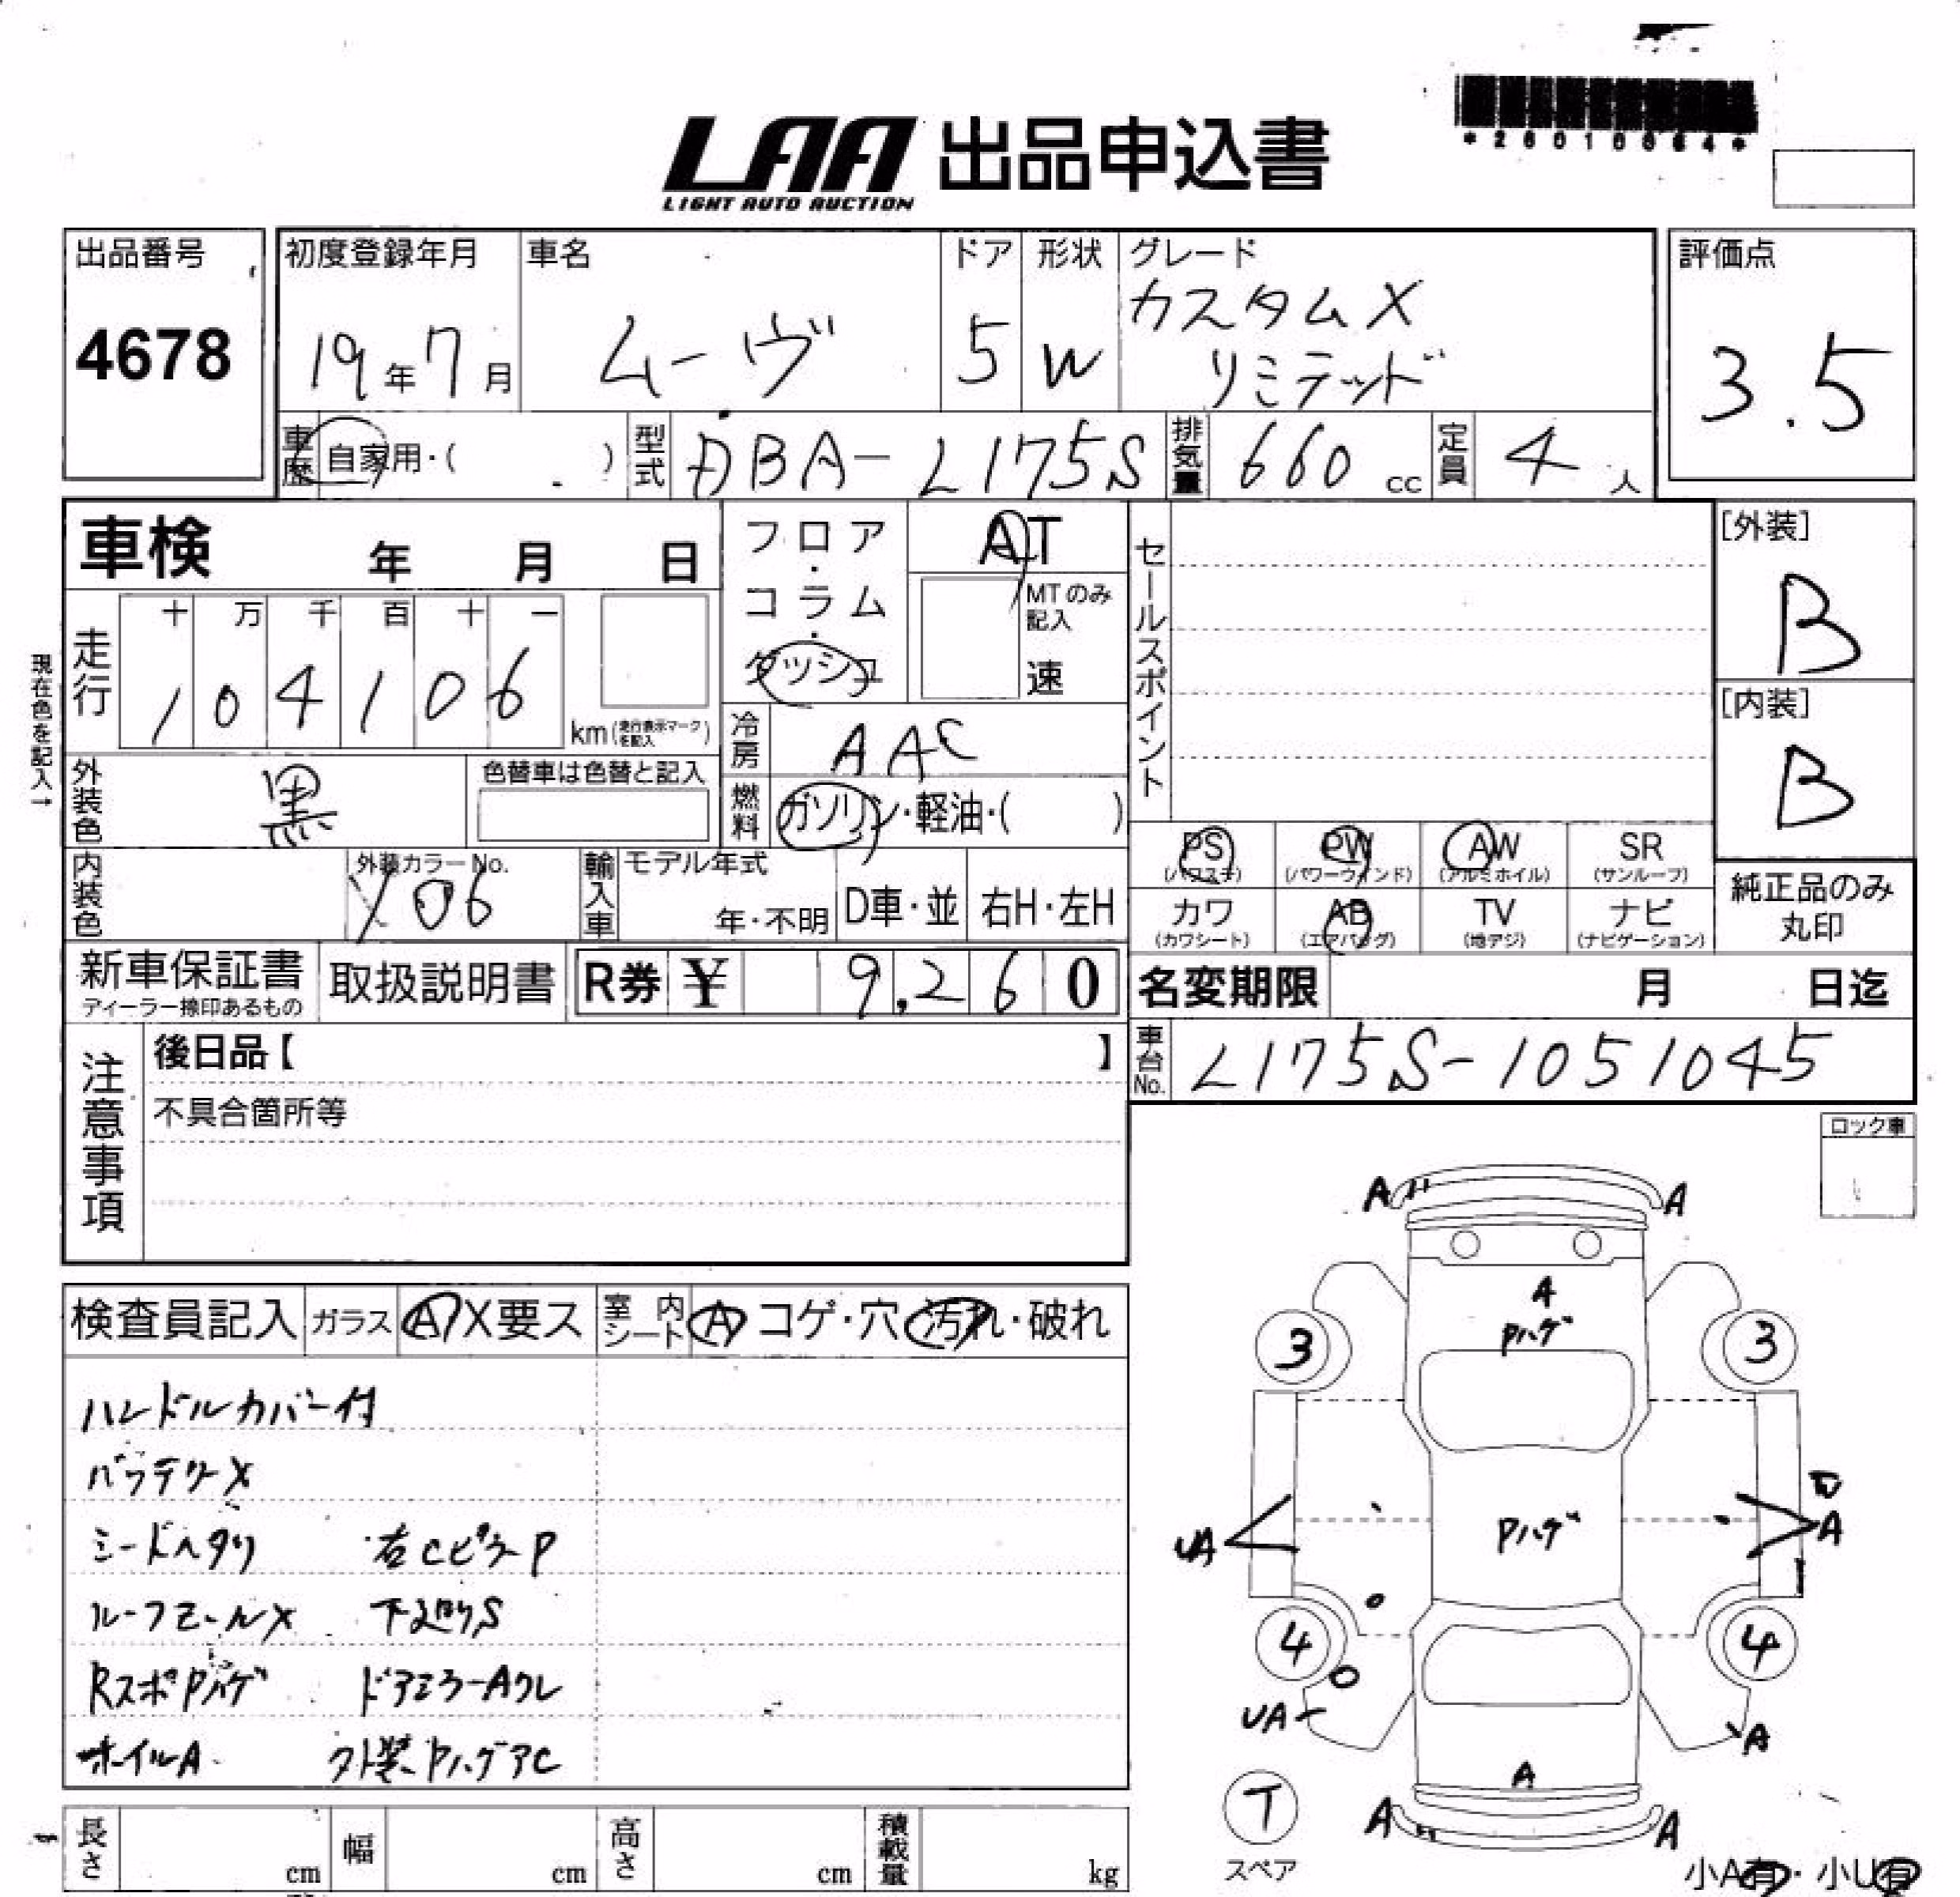 LAA 出品申込書
LIGHT AUTO AUCTION
出品番号
4678
初度登録年月
19年7月
車名
ムーヴ
ドア
5
形状
W
グレード
カスタムX
リミテッド
評価点
3.5
車歴 自家用・( )
型式 DBA-L175S
排気量 660 cc
定員 4 人
車検 年 月 日
走行
十 万 千 百 十 一
1 0 4 1 0 6
km (走行表示マークを記入)
現在色を記入→
外装色 黒
色替車は色替と記入
内装色
外装カラーNo.
X06
輸入車
モデル年式
年・不明
D車・並
右H・左H
フロア・コラム・ダッシュ
AT
MTのみ記入
速
冷房 AAC
燃料 ガソリン・軽油・( )
セールスポイント
[外装]
B
[内装]
B
PS (パワステ)
PW (パワーウィンド)
AW (アルミホイル)
SR (サンルーフ)
カワ (カワシート)
AB (エアバッグ)
TV (地デジ)
ナビ (ナビゲーション)
純正品のみ丸印
新車保証書
ディーラー捺印あるもの
取扱説明書
R券 ¥ 9,260
名変期限 月 日迄
車台No. L175S-1051045
注意事項
後日品【 】
不具合箇所等
ロック車
検査員記入
ガラス A X要ス
室内シート A コゲ・穴・汚れ・破れ
ハンドルカバー付
バッテリーX
シートヘタリ 右CピラーP
ルーフモールX 下廻りS
RスポPハゲ ドアミラーAワレ
ホイルA 外装PハゲアC
A A
A
Pハゲ
3 3
D
UA Pハゲ A
4 4
UA A
A
A A
T
スペア
小A有・小U有
長さ cm
幅 cm
高さ cm
積載量 kg